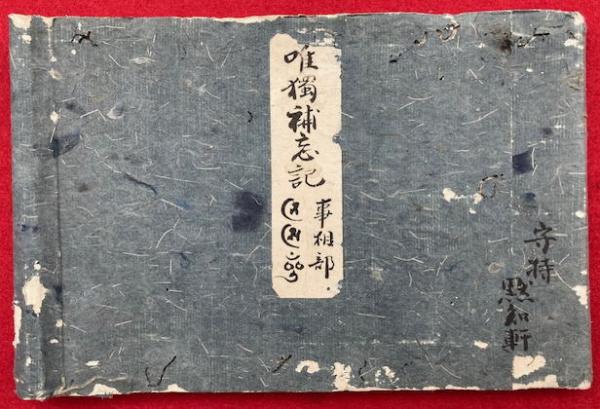 唯獨補忘記
事相部
守持
點知軒